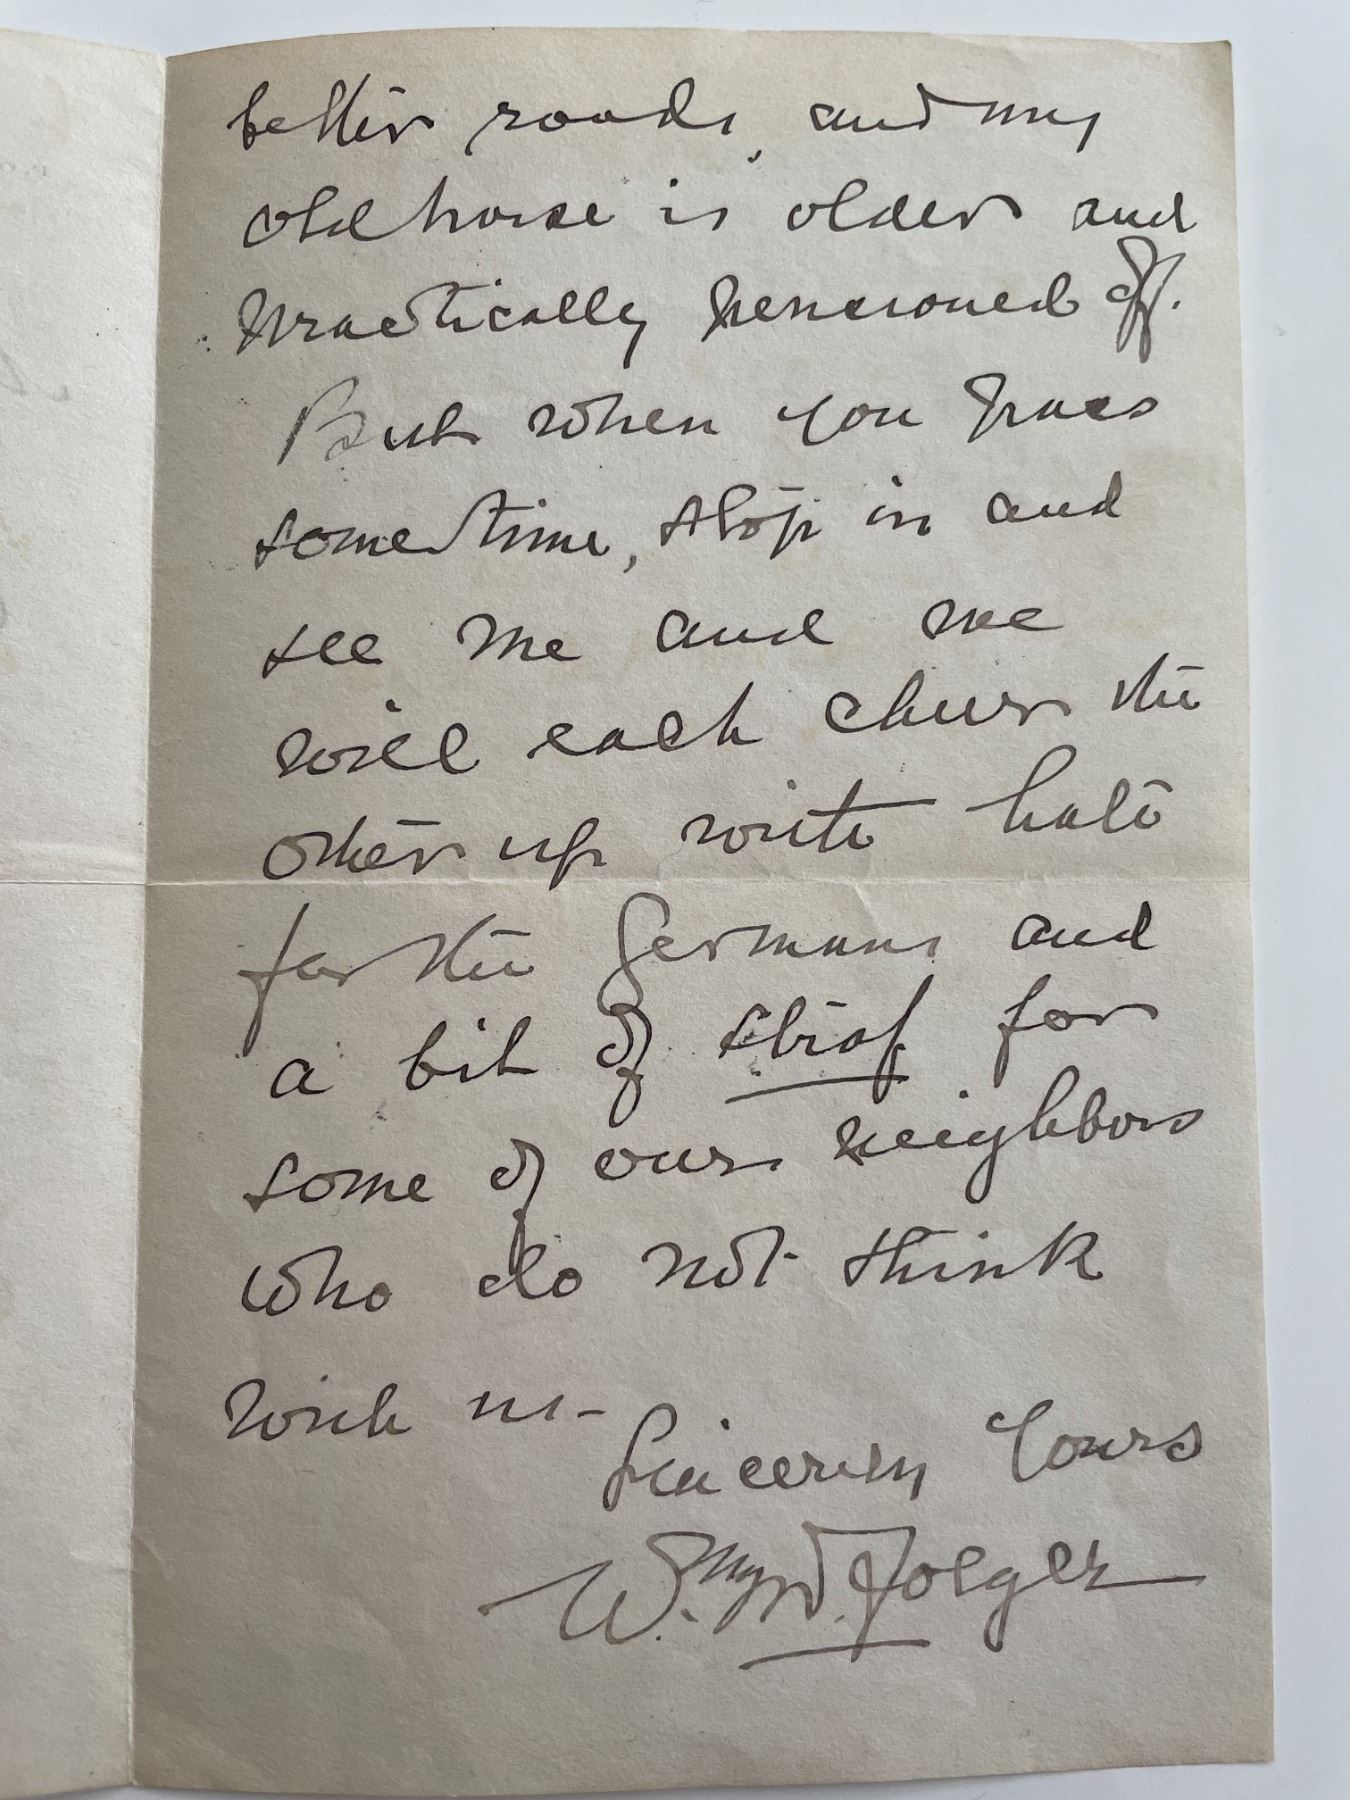 better roads, and my
old horse is older and
practically pensioned off.
But when you pass
sometime, stop in and
see me and we
will each cheer the
other up with hate
for the Germans and
a bit of straf for
some of our neighbors
who do not think
with us-
Sincerely Yours
W.